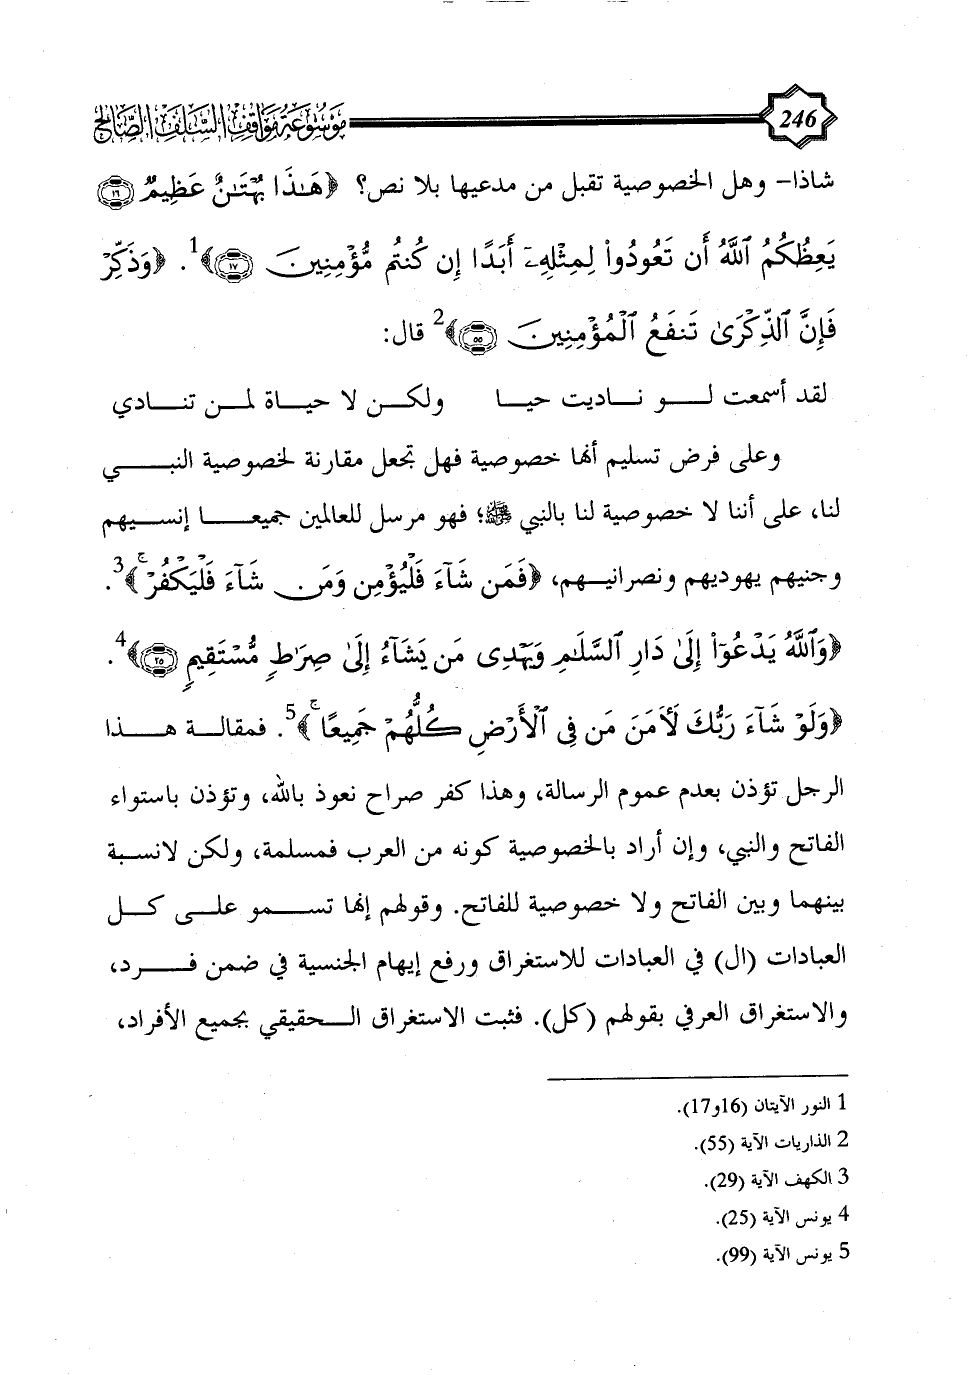 246
موسوعة مواقف السلف الصالح
شاذا- وهل الخصوصية تقبل من مدعيها بلا نص؟ ﴿هَـٰذَا بُهْتَـٰنٌ عَظِيمٌ ١٦
يَعِظُكُمُ ٱللَّهُ أَن تَعُودُوا۟ لِمِثْلِهِۦٓ أَبَدًا إِن كُنتُم مُّؤْمِنِينَ ١٧﴾1. ﴿وَذَكِّرْ
فَإِنَّ ٱلذِّكْرَىٰ تَنفَعُ ٱلْمُؤْمِنِينَ ٥٥﴾2 قال:
لقد أسمعت لـو نـاديت حيـا ولكـن لا حيـاة لمـن تنـادي
وعلى فرض تسليم أنها خصوصية فهل تجعل مقارنة لخصوصية النبـي
لنا، على أننا لا خصوصية لنا بالنبي ﷺ؛ فهو مرسل للعالمين جميعـا إنسـيهم
وجنيهم يهوديهم ونصرانيـهم، ﴿فَمَن شَآءَ فَلْيُؤْمِن وَمَن شَآءَ فَلْيَكْفُرْ ۚ﴾3.
﴿وَٱللَّهُ يَدْعُوٓا۟ إِلَىٰ دَارِ ٱلسَّلَـٰمِ وَيَهْدِى مَن يَشَآءُ إِلَىٰ صِرَٰطٍ مُّسْتَقِيمٍ ٢٥﴾4.
﴿وَلَوْ شَآءَ رَبُّكَ لَـَٔامَنَ مَن فِى ٱلْأَرْضِ كُلُّهُمْ جَمِيعًا ۚ﴾5. فمقالـة هـذا
الرجل تؤذن بعدم عموم الرسالة، وهذا كفر صراح نعوذ بالله، وتؤذن باستواء
الفاتح والنبي، وإن أراد بالخصوصية كونه من العرب فمسلمة، ولكن لانسـبة
بينهما وبين الفاتح ولا خصوصية للفاتح. وقولهم إنها تسـمو علـى كـل
العبادات (ال) في العبادات للاستغراق ورفع إيهام الجنسية في ضمن فـرد،
والاستغراق العرفي بقولهم (كل). فثبت الاستغراق الـحقيقي بجميع الأفراد،
1 النور الآيتان (16و17).
2 الذاريات الآية (55).
3 الكهف الآية (29).
4 يونس الآية (25).
5 يونس الآية (99).